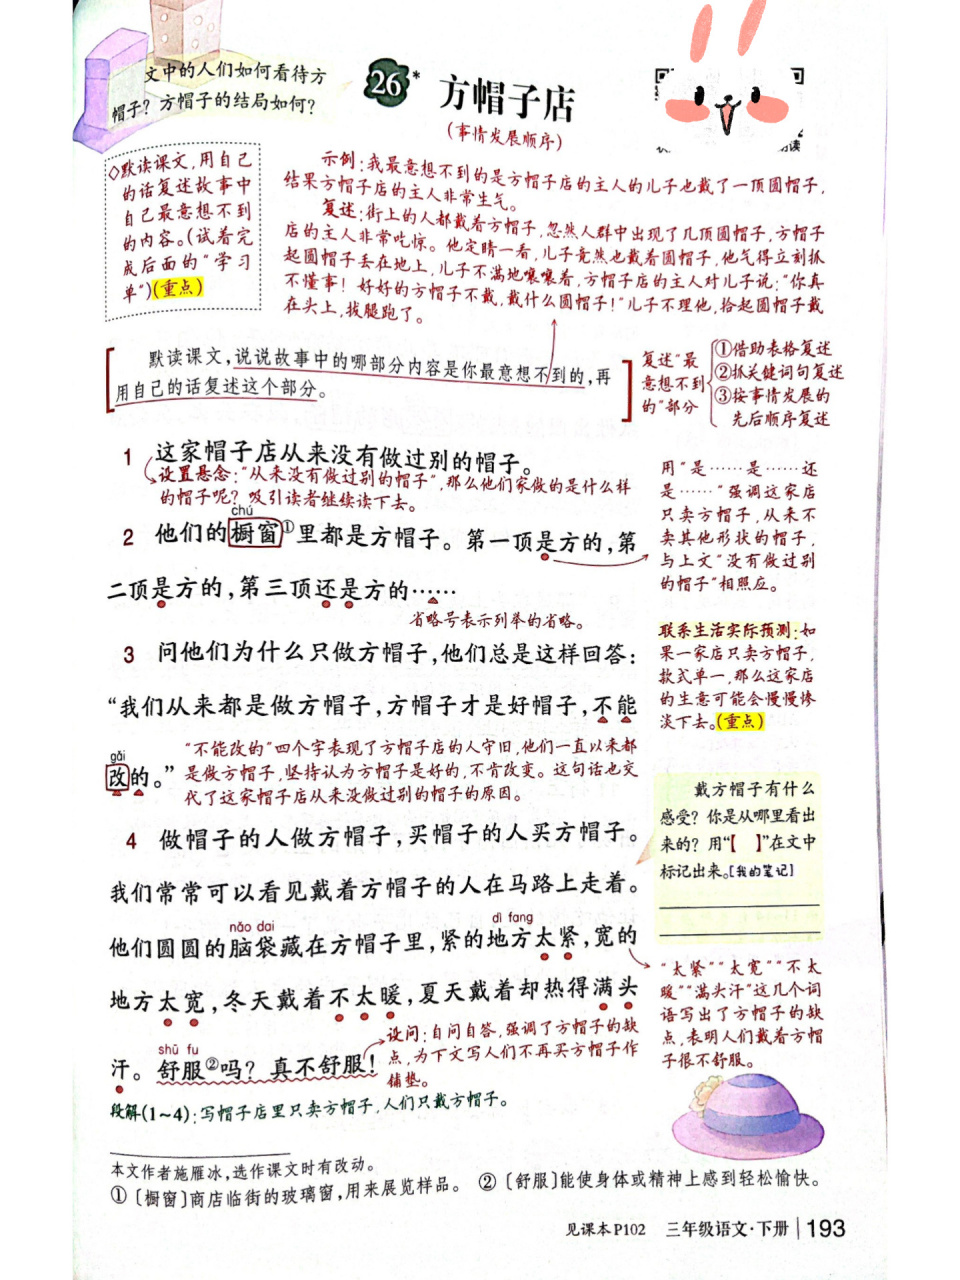 文中的人们如何看待方
帽子？方帽子的结局如何？
26* 方帽子店
(事情发展顺序)
◇默读课文，用自己
的话复述故事中
自己最意想不到
的内容。(试着完
成后面的“学习
单”)(重点)
示例：我最意想不到的是方帽子店的主人的儿子也戴了一顶圆帽子，
结果方帽子店的主人非常生气。
复述：街上的人都戴着方帽子，忽然人群中出现了几顶圆帽子，方帽子
店的主人非常吃惊。他定睛一看，儿子竟然也戴着圆帽子，他气得立刻抓
起圆帽子丢在地上，儿子不满地嚷嚷着，方帽子店的主人对儿子说：“你真
不懂事！好好的方帽子不戴，戴什么圆帽子！”儿子不理他，拾起圆帽子戴
在头上，拔腿跑了。
默读课文，说说故事中的哪部分内容是你最意想不到的，再
用自己的话复述这个部分。
复述“最
意想不到
的”部分
①借助表格复述
②抓关键词句复述
③按事情发展的
先后顺序复述
1 这家帽子店从来没有做过别的帽子。
设置悬念：“从来没有做过别的帽子”，那么他们家做的是什么样
的帽子呢？吸引读者继续读下去。
chú
2 他们的橱窗①里都是方帽子。第一顶是方的，第
二顶是方的，第三顶还是方的……
省略号表示列举的省略。
用“是……是……还
是……”强调这家店
只卖方帽子，从来不
卖其他形状的帽子，
与上文“没有做过别
的帽子”相照应。
3 问他们为什么只做方帽子，他们总是这样回答：
“我们从来都是做方帽子，方帽子才是好帽子，不能
gǎi
改的。”
“不能改的”四个字表现了方帽子店的人守旧，他们一直以来都
是做方帽子，坚持认为方帽子是好的，不肯改变。这句话也交
代了这家帽子店从来没做过别的帽子的原因。
联系生活实际预测：如
果一家店只卖方帽子，
款式单一，那么这家店
的生意可能会慢慢惨
淡下去。(重点)
4 做帽子的人做方帽子，买帽子的人买方帽子。
我们常常可以看见戴着方帽子的人在马路上走着。
nǎo dai dì fang
他们圆圆的脑袋藏在方帽子里，紧的地方太紧，宽的
地方太宽，冬天戴着不太暖，夏天戴着却热得满头
shū fu
汗。舒服②吗？真不舒服！
设问：自问自答，强调了方帽子的缺
点，为下文写人们不再买方帽子作
铺垫。
段解(1~4)：写帽子店里只卖方帽子，人们只戴方帽子。
戴方帽子有什么
感受？你是从哪里看出
来的？用“【 】”在文中
标记出来。[我的笔记]
“太紧”“太宽”“不太
暖”“满头汗”这几个词
语写出了方帽子的缺
点，表明人们戴着方帽
子很不舒服。
本文作者施雁冰，选作课文时有改动。
①〔橱窗〕商店临街的玻璃窗，用来展览样品。 ②〔舒服〕能使身体或精神上感到轻松愉快。
见课本P102 三年级语文·下册 193